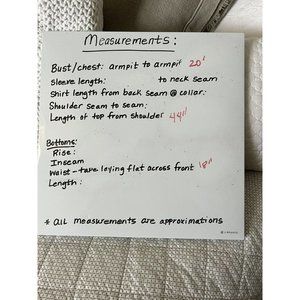 Measurements:
Bust/chest: armpit to armpit 20"
Sleeve length: to neck seam
Shirt length from back seam @ collar:
Shoulder seam to seam:
Length of top from shoulder 44"
Bottoms:
Rise:
Inseam
Waist - tape laying flat across front 18"
Length:
* all measurements are approximations